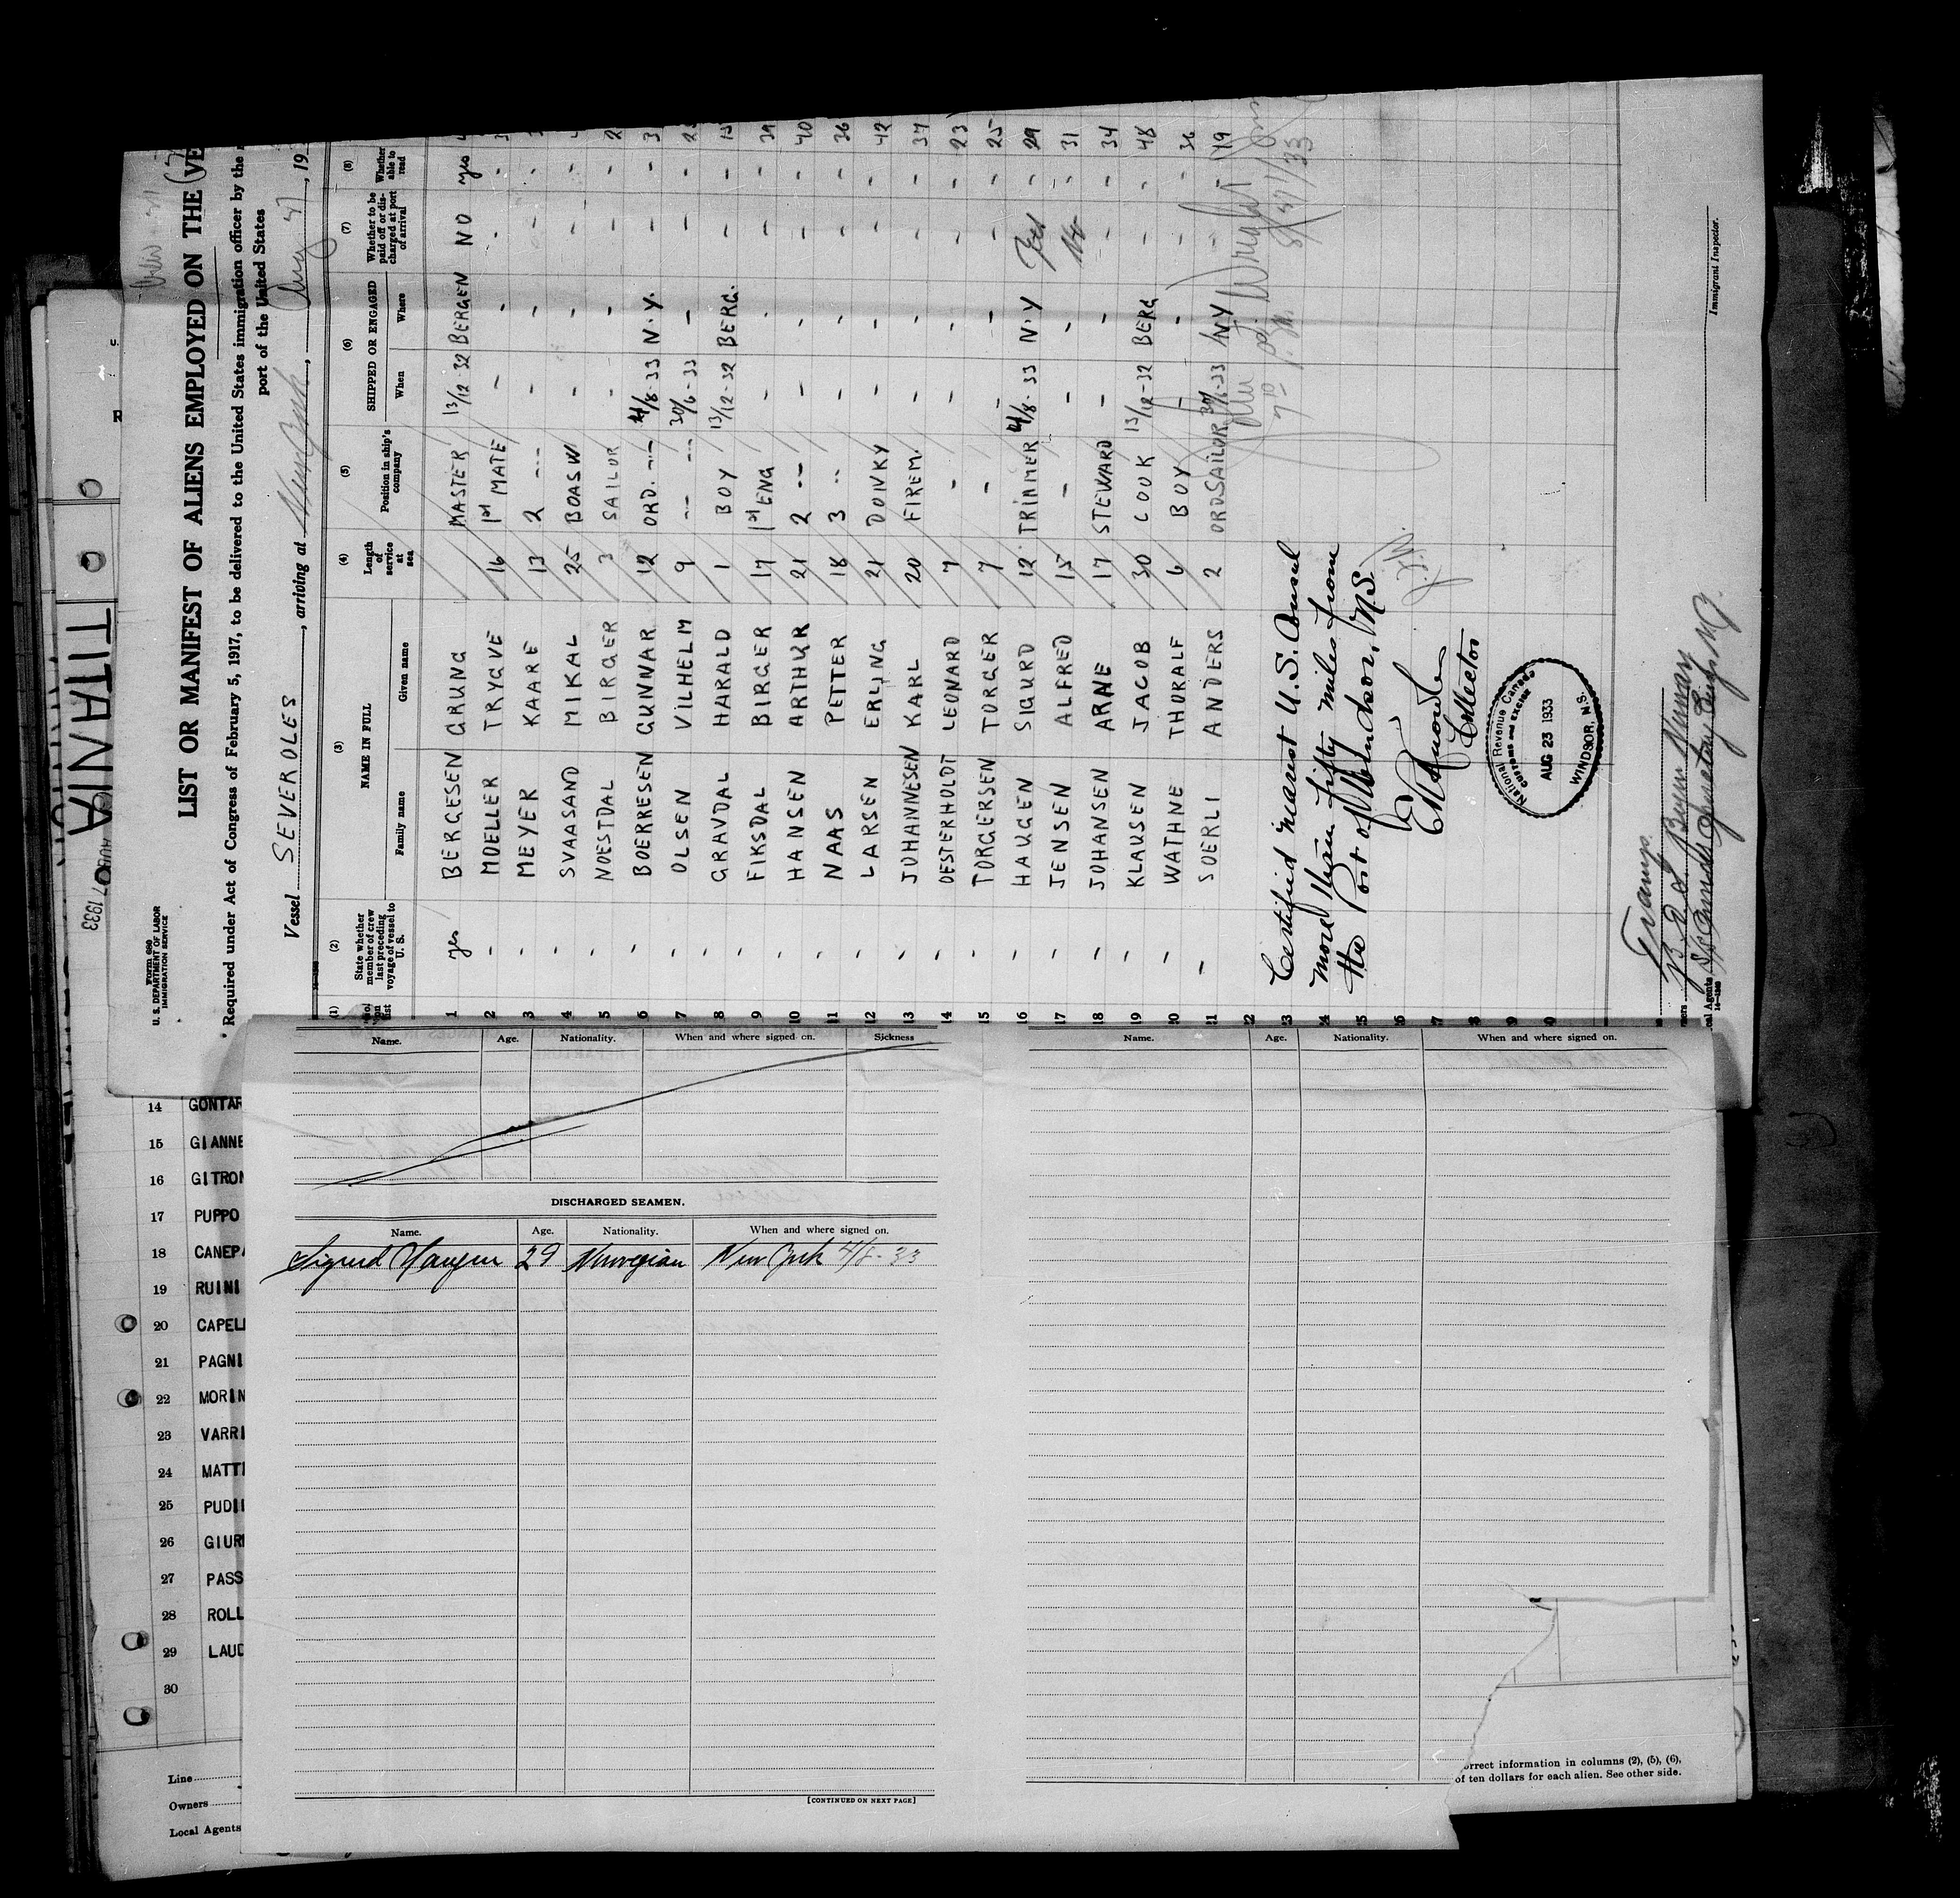 Form 680
U. S. DEPARTMENT OF LABOR
IMMIGRATION SERVICE
LIST OR MANIFEST OF ALIENS EMPLOYED ON THE
Required under Act of Congress of February 5, 1917, to be delivered to the United States immigration officer by the
port of the United States
Vessel SEVEROLES, arriving at New York, Aug 27, 19
(1) (2) (3) (4) (5) (6) (7) (8)
State whether member of crew last preceding voyage of vessel to U. S.
NAME IN FULL
Family name Given name
Length of service at sea
Position in ship's company
SHIPPED OR ENGAGED
When Where
Whether to be paid off or discharged at port of arrival
Whether able to read
1 yes BERGESEN GRUNG MASTER 13/12 32 BERGEN NO yes
2 - MOELLER TRYGVE 16 1st MATE - - - -
3 - MEYER KAARE 13 2 --- - - - -
4 - SVAASAND MIKAL 25 BOASW - - - -
5 - NOESTDAL BIRGER 3 SAILOR - - - - 2
6 - BOERRESEN GUNNAR 12 ORD. --- 4/8-33 N.Y. - - 3
7 - OLSEN VILHELM 9 --- --- 30/6-33 - - - 2
8 - GRAVDAL HARALD 1 BOY 13/12-32 BERG. - - 15
9 - FIKSDAL BIRGER 17 1st ENG - - - - 39
10 - HANSEN ARTHUR 21 2 -- - - - - 40
11 - NAAS PETTER 18 3 -- - - - - 36
12 - LARSEN ERLING 21 DONKY - - - - 42
13 - JOHANNESEN KARL 20 FIREM - - - - 37
14 - OESTERHOLDT LEONARD 7 - - - - - 23
15 - TORGERSEN TORGER 7 - - - - - 25
16 - HAUGEN SIGURD 12 TRIMMER 4/8-33 N.Y Yes - 29
17 - JENSEN ALFRED 15 - - - No - 31
18 - JOHANSEN ARNE 17 STEWARD - - - - 34
19 - KLAUSEN JACOB 30 COOK 13/12-32 BERG - - 48
20 - WATHNE THORALF 6 BOY - - - - 36
21 - SOERLI ANDERS 2 ORDSAILOR 30/6-33 NY - - 19
22
23
24
25
26
27
28
29
30
Certified nearest U.S. Consul
more than fifty miles from
the Port of Windsor, N.S.
Collector
National Revenue Canada
CUSTOMS AND EXCISE
AUG 23 1933
WINDSOR, N.S.
Immigrant Inspector.
Tramp
TITANIA
1933
Name. Age. Nationality. When and where signed on. Sickness
DISCHARGED SEAMEN.
Name. Age. Nationality. When and where signed on.
Sigurd Haugen 29 Norwegian New York 4/8-33
[CONTINUED ON NEXT PAGE]
Name. Age. Nationality. When and where signed on.
14 GONTAR
15 GIANNE
16 GITRON
17 PUPPO
18 CANEPA
19 RUINI
20 CAPELL
21 PAGNI
22 MORIN
23 VARRI
24 MATTI
25 PUDII
26 GIUR
27 PASS
28 ROLL
29 LAUD
30
Line
Owners
Local Agents
orrect information in columns (2), (5), (6),
of ten dollars for each alien. See other side.